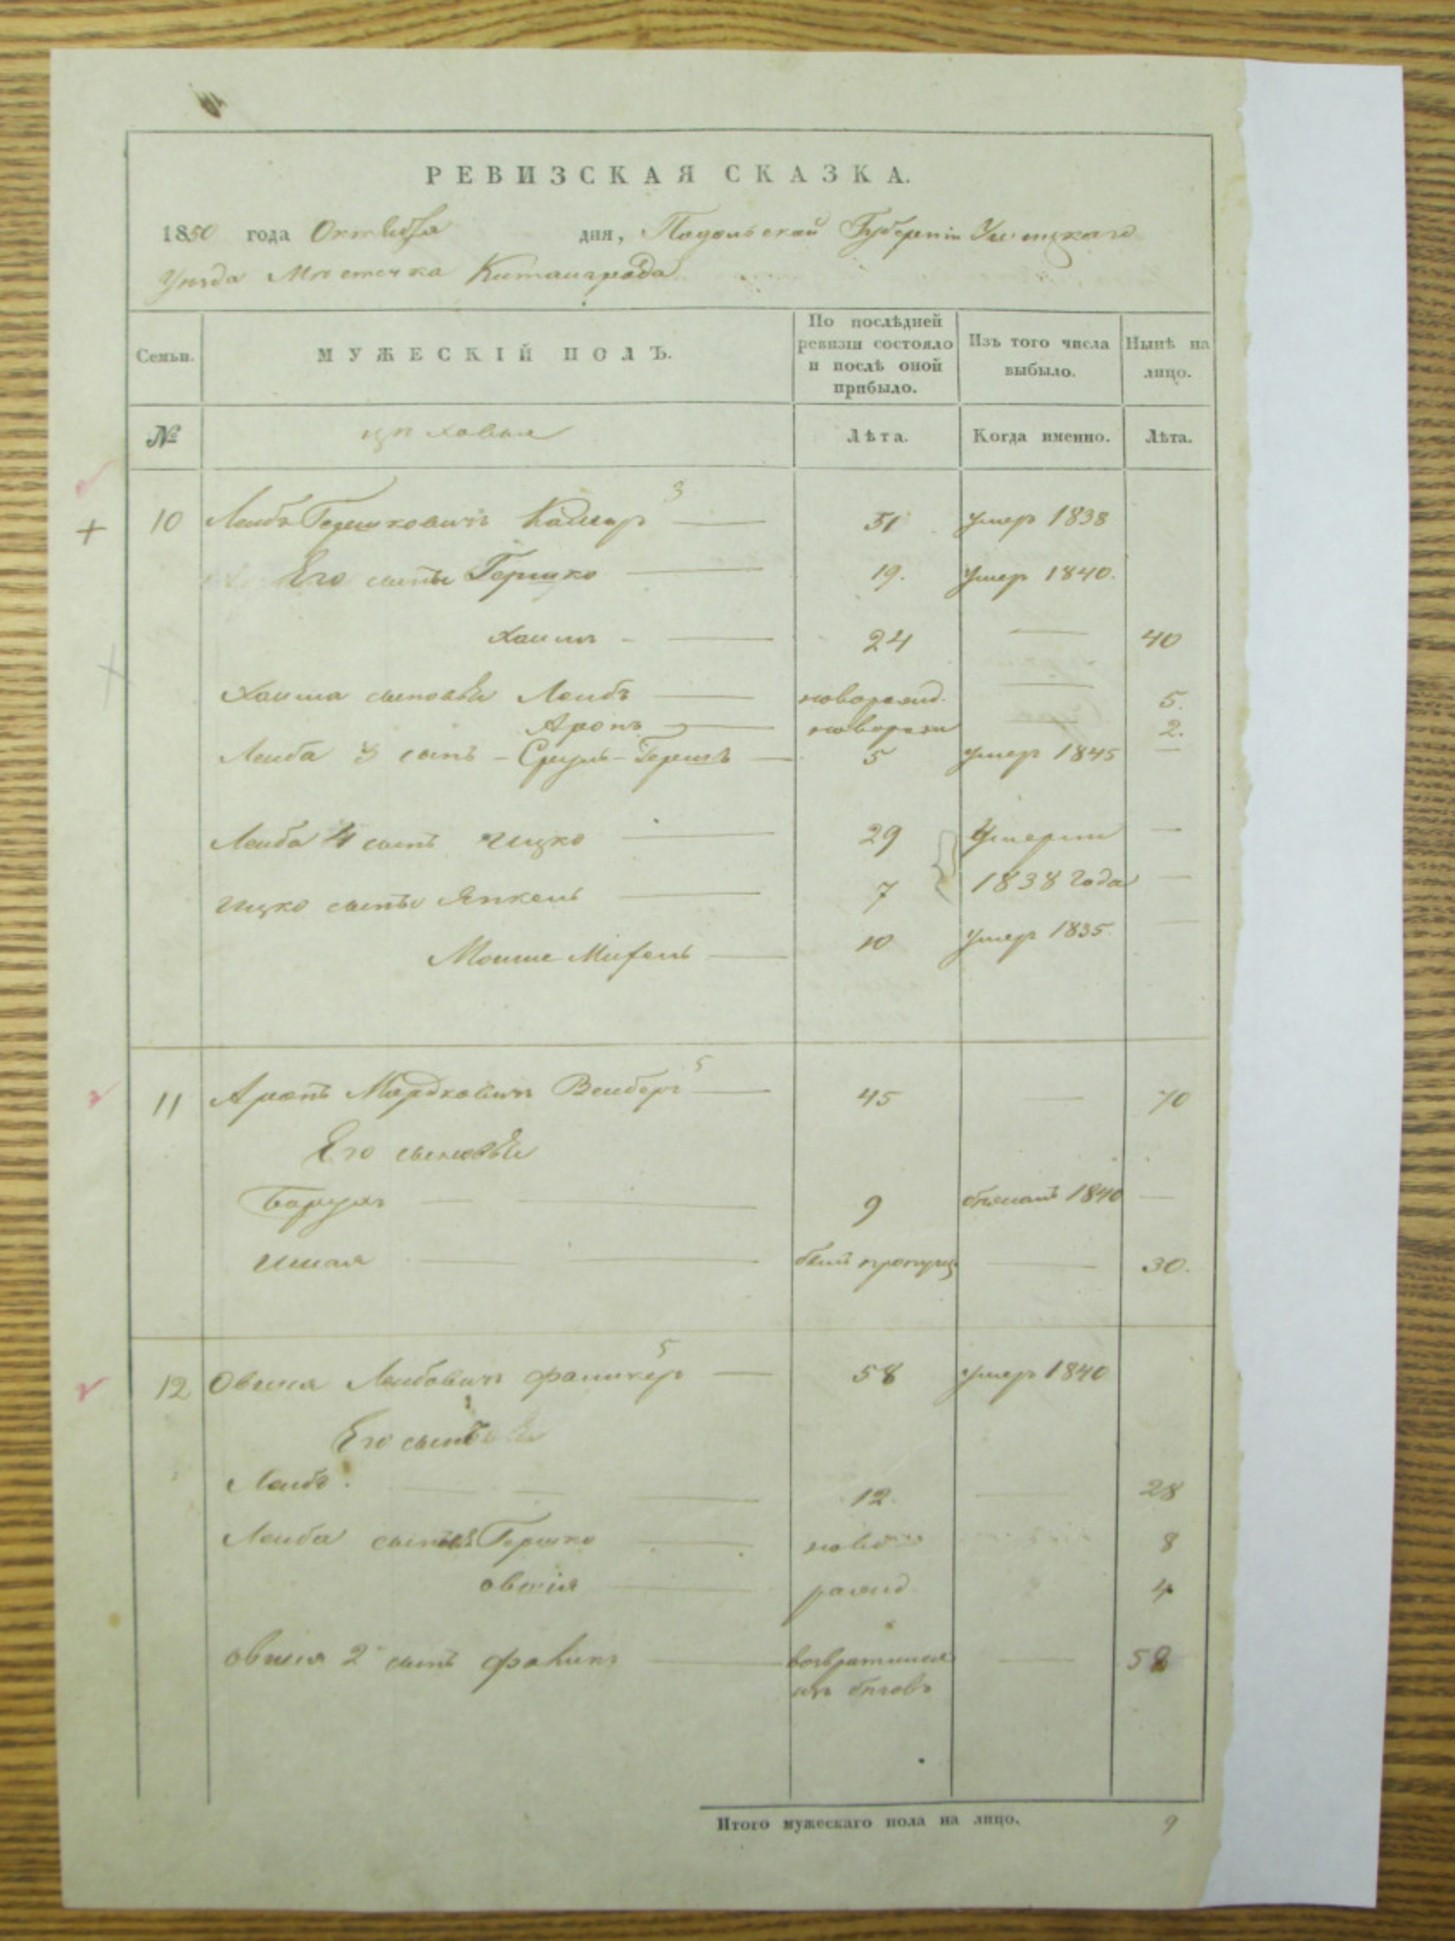 РЕВИЗСКАЯ СКАЗКА.
1850 года Октября дня, Подольской Губерніи Ушицкаго
Уѣзда Мѣстечка Китайгрода
Семьи. МУЖЕСКІЙ ПОЛЪ. По послѣдней ревизіи состояло и послѣ оной прибыло. Изъ того числа выбыло. Нынѣ на лицо.
№ цѣховые Лѣта. Когда именно. Лѣта.
10 Лейбъ Гершковичъ 3 51 умер 1838
Его сынъ Гершко 19. умер 1840.
Хаимъ 24 — 40
Хаима сыновья Лейбъ новорожд. — 5.
Аронъ новорож — 2.
Лейба 3 сынъ - Сруль-Гершъ 5 умер 1845 —
Лейба 4 сынъ Ицко 29 Умерли —
Ицко сынъ Янкель 7 1838 года —
Мошие 10 умер 1835.
11 Аронъ Мордковичъ Вейберг 5 45 — 70
Его сыновья
Барухъ 9 1840 —
Ишая былъ пропущ — 30.
12 Овшия Лейбовичъ 5 58 умер 1840
Его сыновья
Лейбъ 12. — 28
Лейба сынъ Гершко ново 8
Овшія рожд 4
Овшия 2 сынъ возвратился — 58
изъ бѣговъ
Итого мужескаго пола на лицо. 9